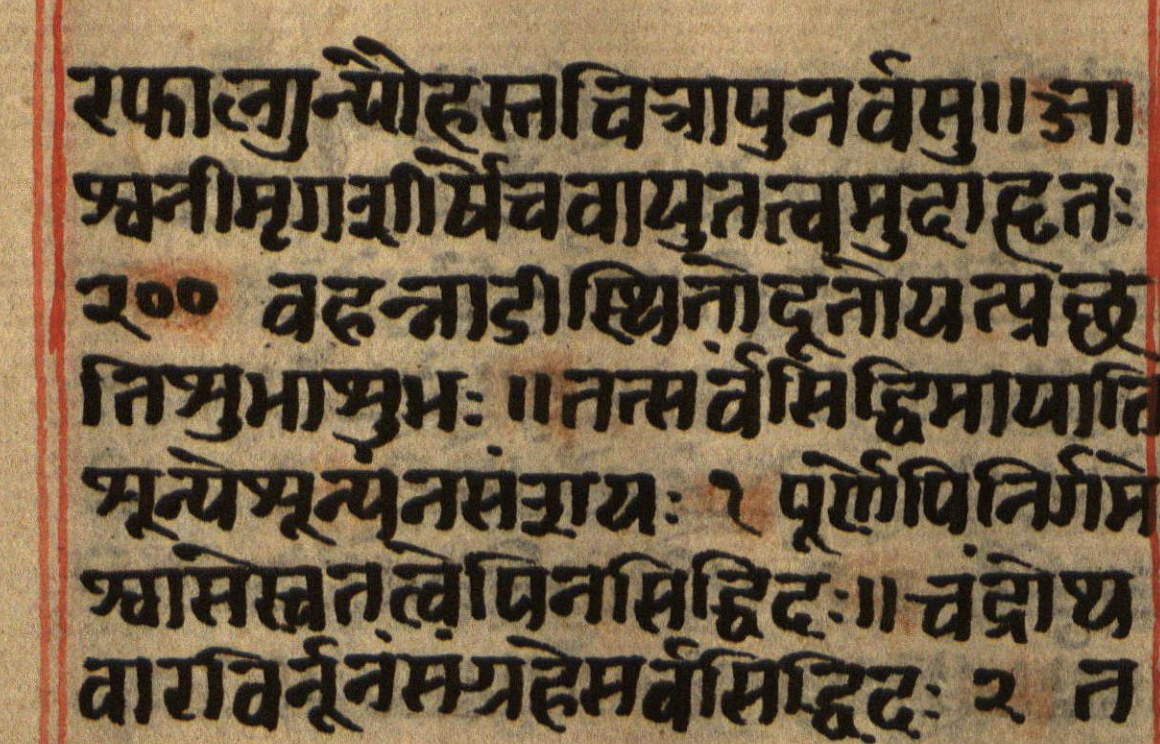 रफाल्गुन्यौहस्तचित्रापुनर्वसु॥आ
श्वनीमृगशीर्षेचवायुतत्वमुदाहृतः
२०० वहन्नाडीस्थितोदूतोयत्प्रछ
तिशुभाशुभः ॥तत्सर्वंसिद्धिमायाति
शून्येशून्यंनसंशयः १ पूर्णेपिनिर्गमे
श्वासेस्वतत्वेपिनसिद्धिदः॥चंद्रोथ
वारविर्नूनंसंग्रहेसर्वसिद्धिदः २ त